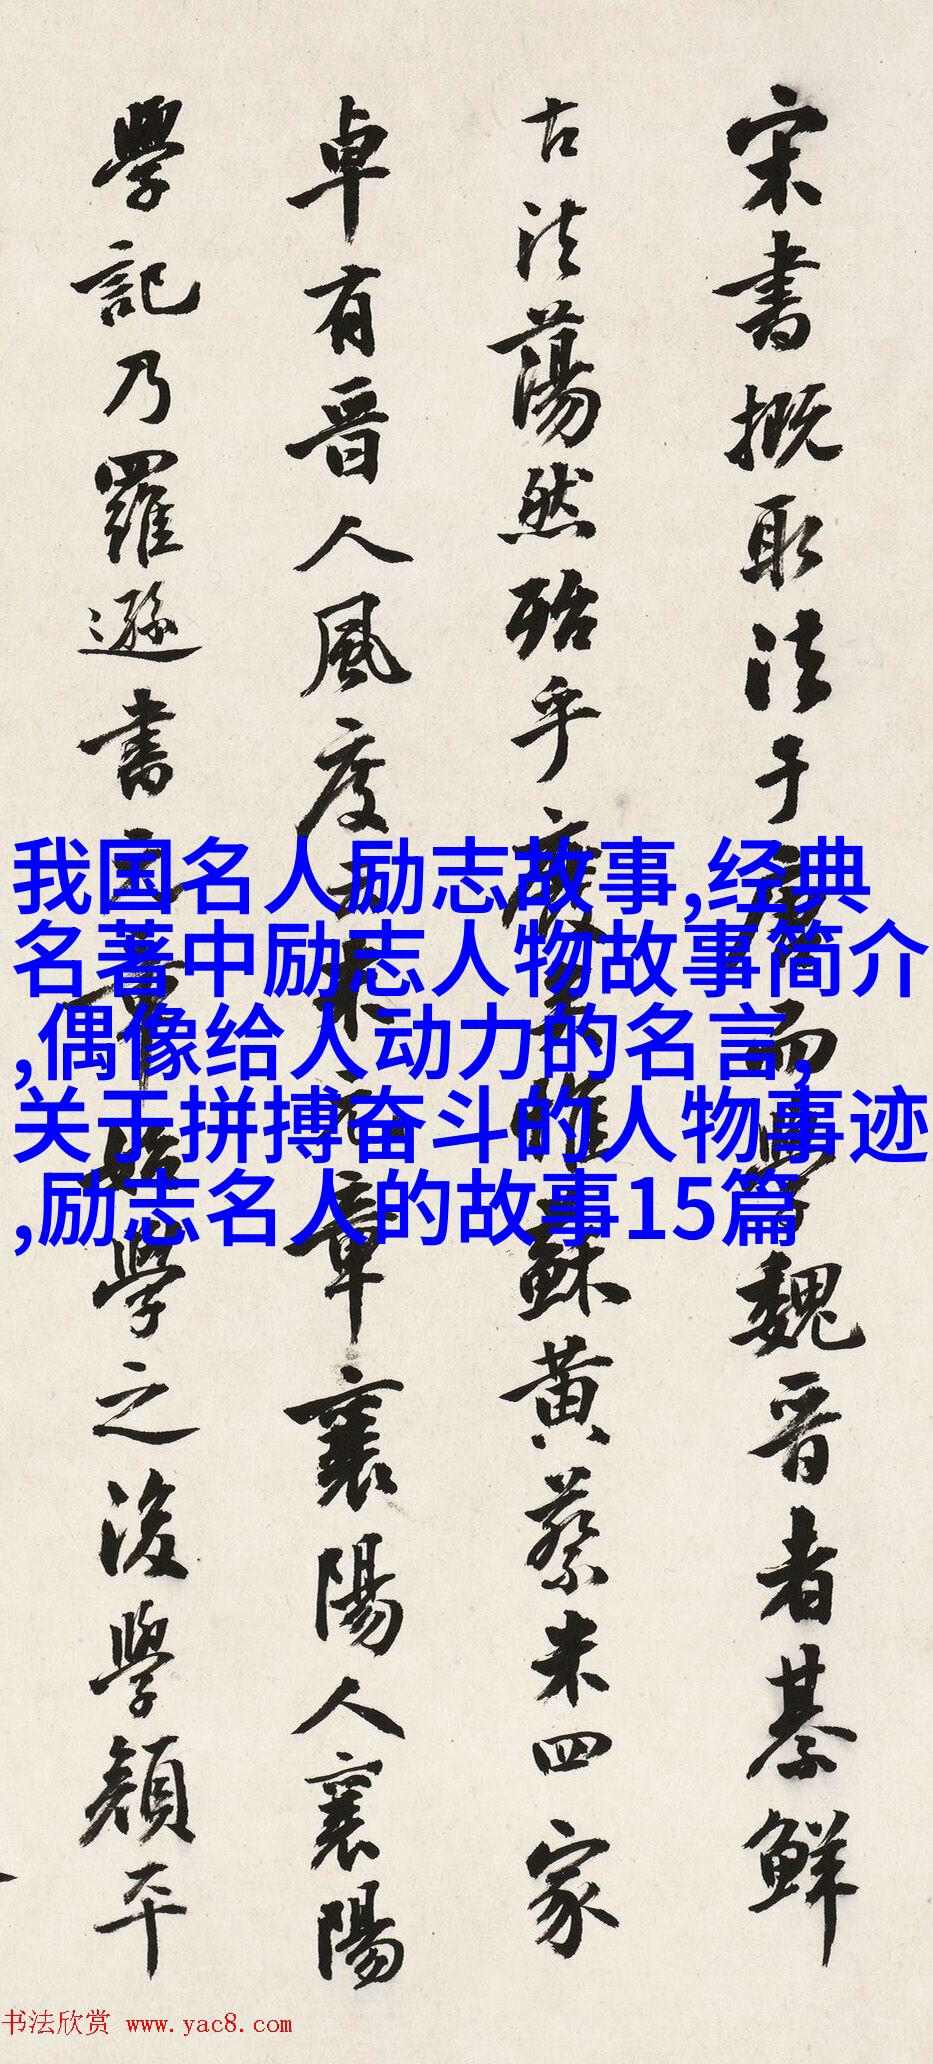 宋書概取法于唐而學魏晉者綦鮮
古法蕩然殆乎廢矣惟蘇黃蔡米四家
卓有晉人風度米元章襄陽人襄陽
學記乃羅遜書元章始學之後學顏平
我国名人励志故事,经典
名著中励志人物故事简介
,偶像给人动力的名言,
关于拼搏奋斗的人物事迹
,励志名人的故事15篇
书法欣赏 www.yac8.com